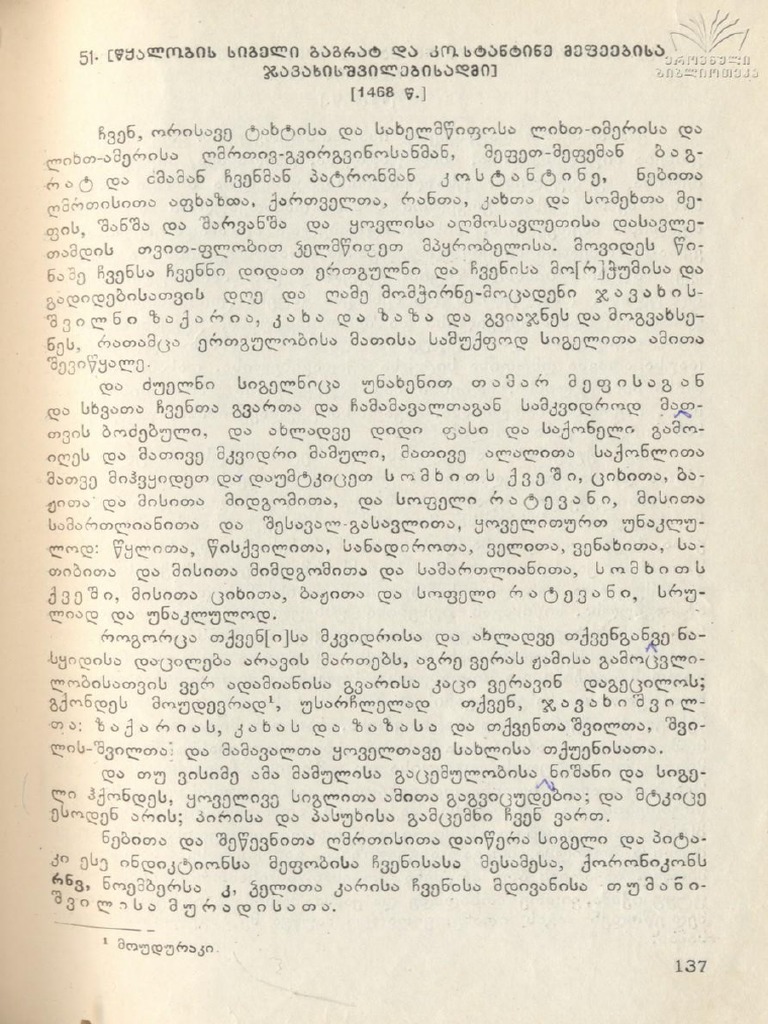 ეროვნული
ბიბლიოთეკა
51. [წყალობის სიგელი ბაგრატ და კოსტანტინე მეფეებისა
ჯავახისშვილებისადმი]
[1468 წ.]
ჩვენ, ორისავე ტახტისა და სახელმწიფოსა ლიხთ-იმერისა და
ლიხთ-ამერისა ღმრთივ-გვირგვინოსანმან, მეფეთ-მეფემან ბაგ-
რატ და ძმამან ჩვენმან პატრონმან კოსტანტინე, ნებითა
ღმრთისითა აფხაზთა, ქართველთა, რანთა, კახთა და სომეხთა მე-
ფის, შანშა და შარვანშა და ყოვლისა აღმოსავლეთისა დასავლე-
თამდის თვით-ფლობით ჴელმწიფეთ მპყრობელისა. მოვიდეს წი-
ნაშე ჩვენსა ჩვენნი დიდათ ერთგულნი და ჩვენისა მო[რ]ჭუმისა და
გადიდებისათვის დღე და ღამე მომჭირნე-მოცადენი ჯავახის-
შვილნი ზაქარია, კახა და ზაზა და გვიაჯნეს და მოგვახსე-
ნეს, რათამცა ერთგულობისა მათისა სამუქფოდ სიგელითა ამითა
შევიწყალე.
და ძუელნი სიგელნიცა უნახენით თამარ მეფისაგან
და სხვათა ჩვენთა გვართა და ჩამამავალთაგან სამკვიდროდ მათ-
თვის ბოძებული, და ახლადვე დიდი ფასი და საქონელი გამო-
იღეს და მათივე მკვიდრი მამული, მათივე ალალითა საქონლითა
მათვე მიჰვყიდეთ და დაუმტკიცეთ სომხითს ქვეში, ციხითა, ბა-
ჟითა და მისითა მიდგომითა, და სოფელი რატევანი, მისითა
სამართლიანითა და შესავალ-გასავლითა, ყოველითურთ უნაკლუ-
ლოდ: წყლითა, წისქვილითა, სანადიროთა, ველითა, ვენახითა, სა-
თიბითა და მისითა მიმდგომითა და სამართლიანითა, სომხითს
ქვეში, მისითა ციხითა, ბაჟითა და სოფელი რატევანი, სრუ-
ლიად და უნაკლულოდ.
როგორცა თქვენ[ი]სა მკვიდრისა და ახლადვე თქვენგანვე ნა-
სყიდისა დაცილება არავის მართებს, აგრე ვერას ჟამისა გამოცვლი-
ლობისათვის ვერ ადამიანისა გვარისა კაცი ვერავინ დაგეცილოს;
გქონდეს მოუდევრად¹, უსარჩლელად თქვენ, ჯავახიშვილ-
თა: ზაქარიას, კახას და ზაზასა და თქვენთა შვილთა, შვი-
ლის-შვილთა: და მამავალთა ყოველთავე სახლისა თქუენისათა.
და თუ ვისიმე ამა მამულისა გაცემულობისა ნიშანი და სიგე-
ლი ჰქონდეს, ყოველივე სიგლითა ამითა გაგვიცუდებია; და მტკიცე
ესოდენ არის; პირისა და პასუხისა გამცემნი ჩვენ ვართ.
ნებითა და შეწევნითა ღმრთისითა დაიწერა სიგელი და პიტა-
კი ესე ინდიკტიონსა მეფობის ჩვენისასა მესამესა, ქორონიკონს
რნვ, ნოემბერსა კ, ჴელითა კარისა ჩვენისა მდივანისა თუმანი-
შვილისა მურადისათა.
¹ მოუდურაკი.
137